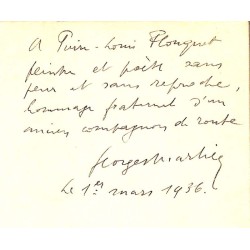 A Pierre-Louis Flouquet
peintre et poète sans
peur et sans reproche,
hommage fraternel d'un
ancien compagnon de route
Georges Marlier
Le 1er mars 1936.